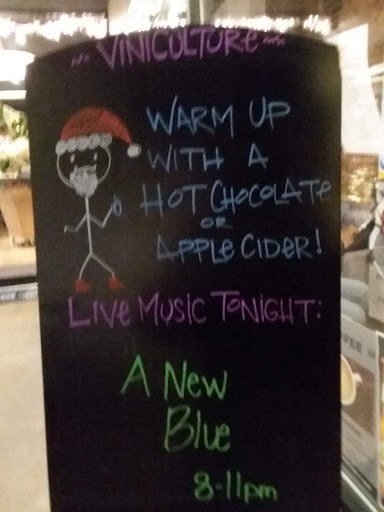 VINICULTURE
WARM UP
WITH A
HOT CHOCOLATE
OR
APPLE CIDER!
LIVE MUSIC TONIGHT:
A NEW
Blue
8-11pm